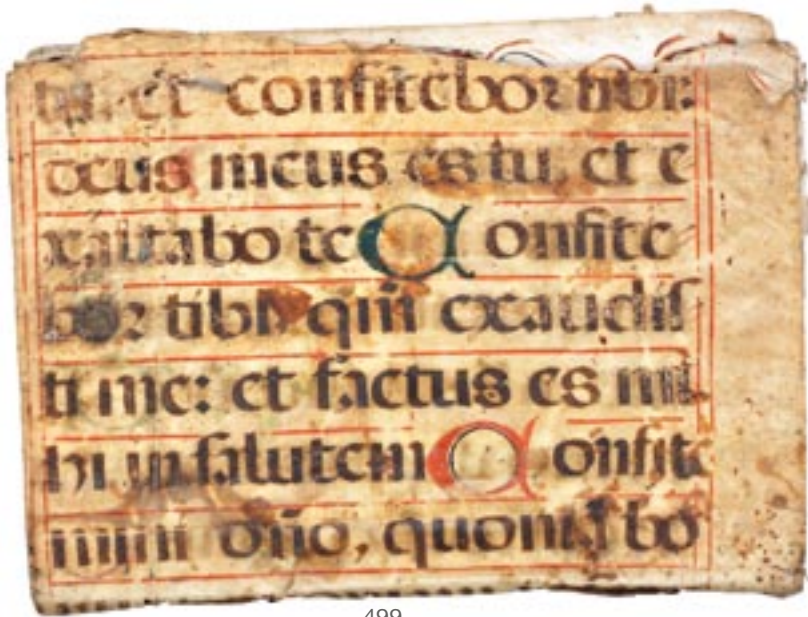 tu, et confitebor tibi:
deus meus es tu, et e
xaltabo te Confite
bor tibi qm̄ exaudis
ti me: et factus es mi
hi in salutem Confite
mini dño, quoniā bo
499